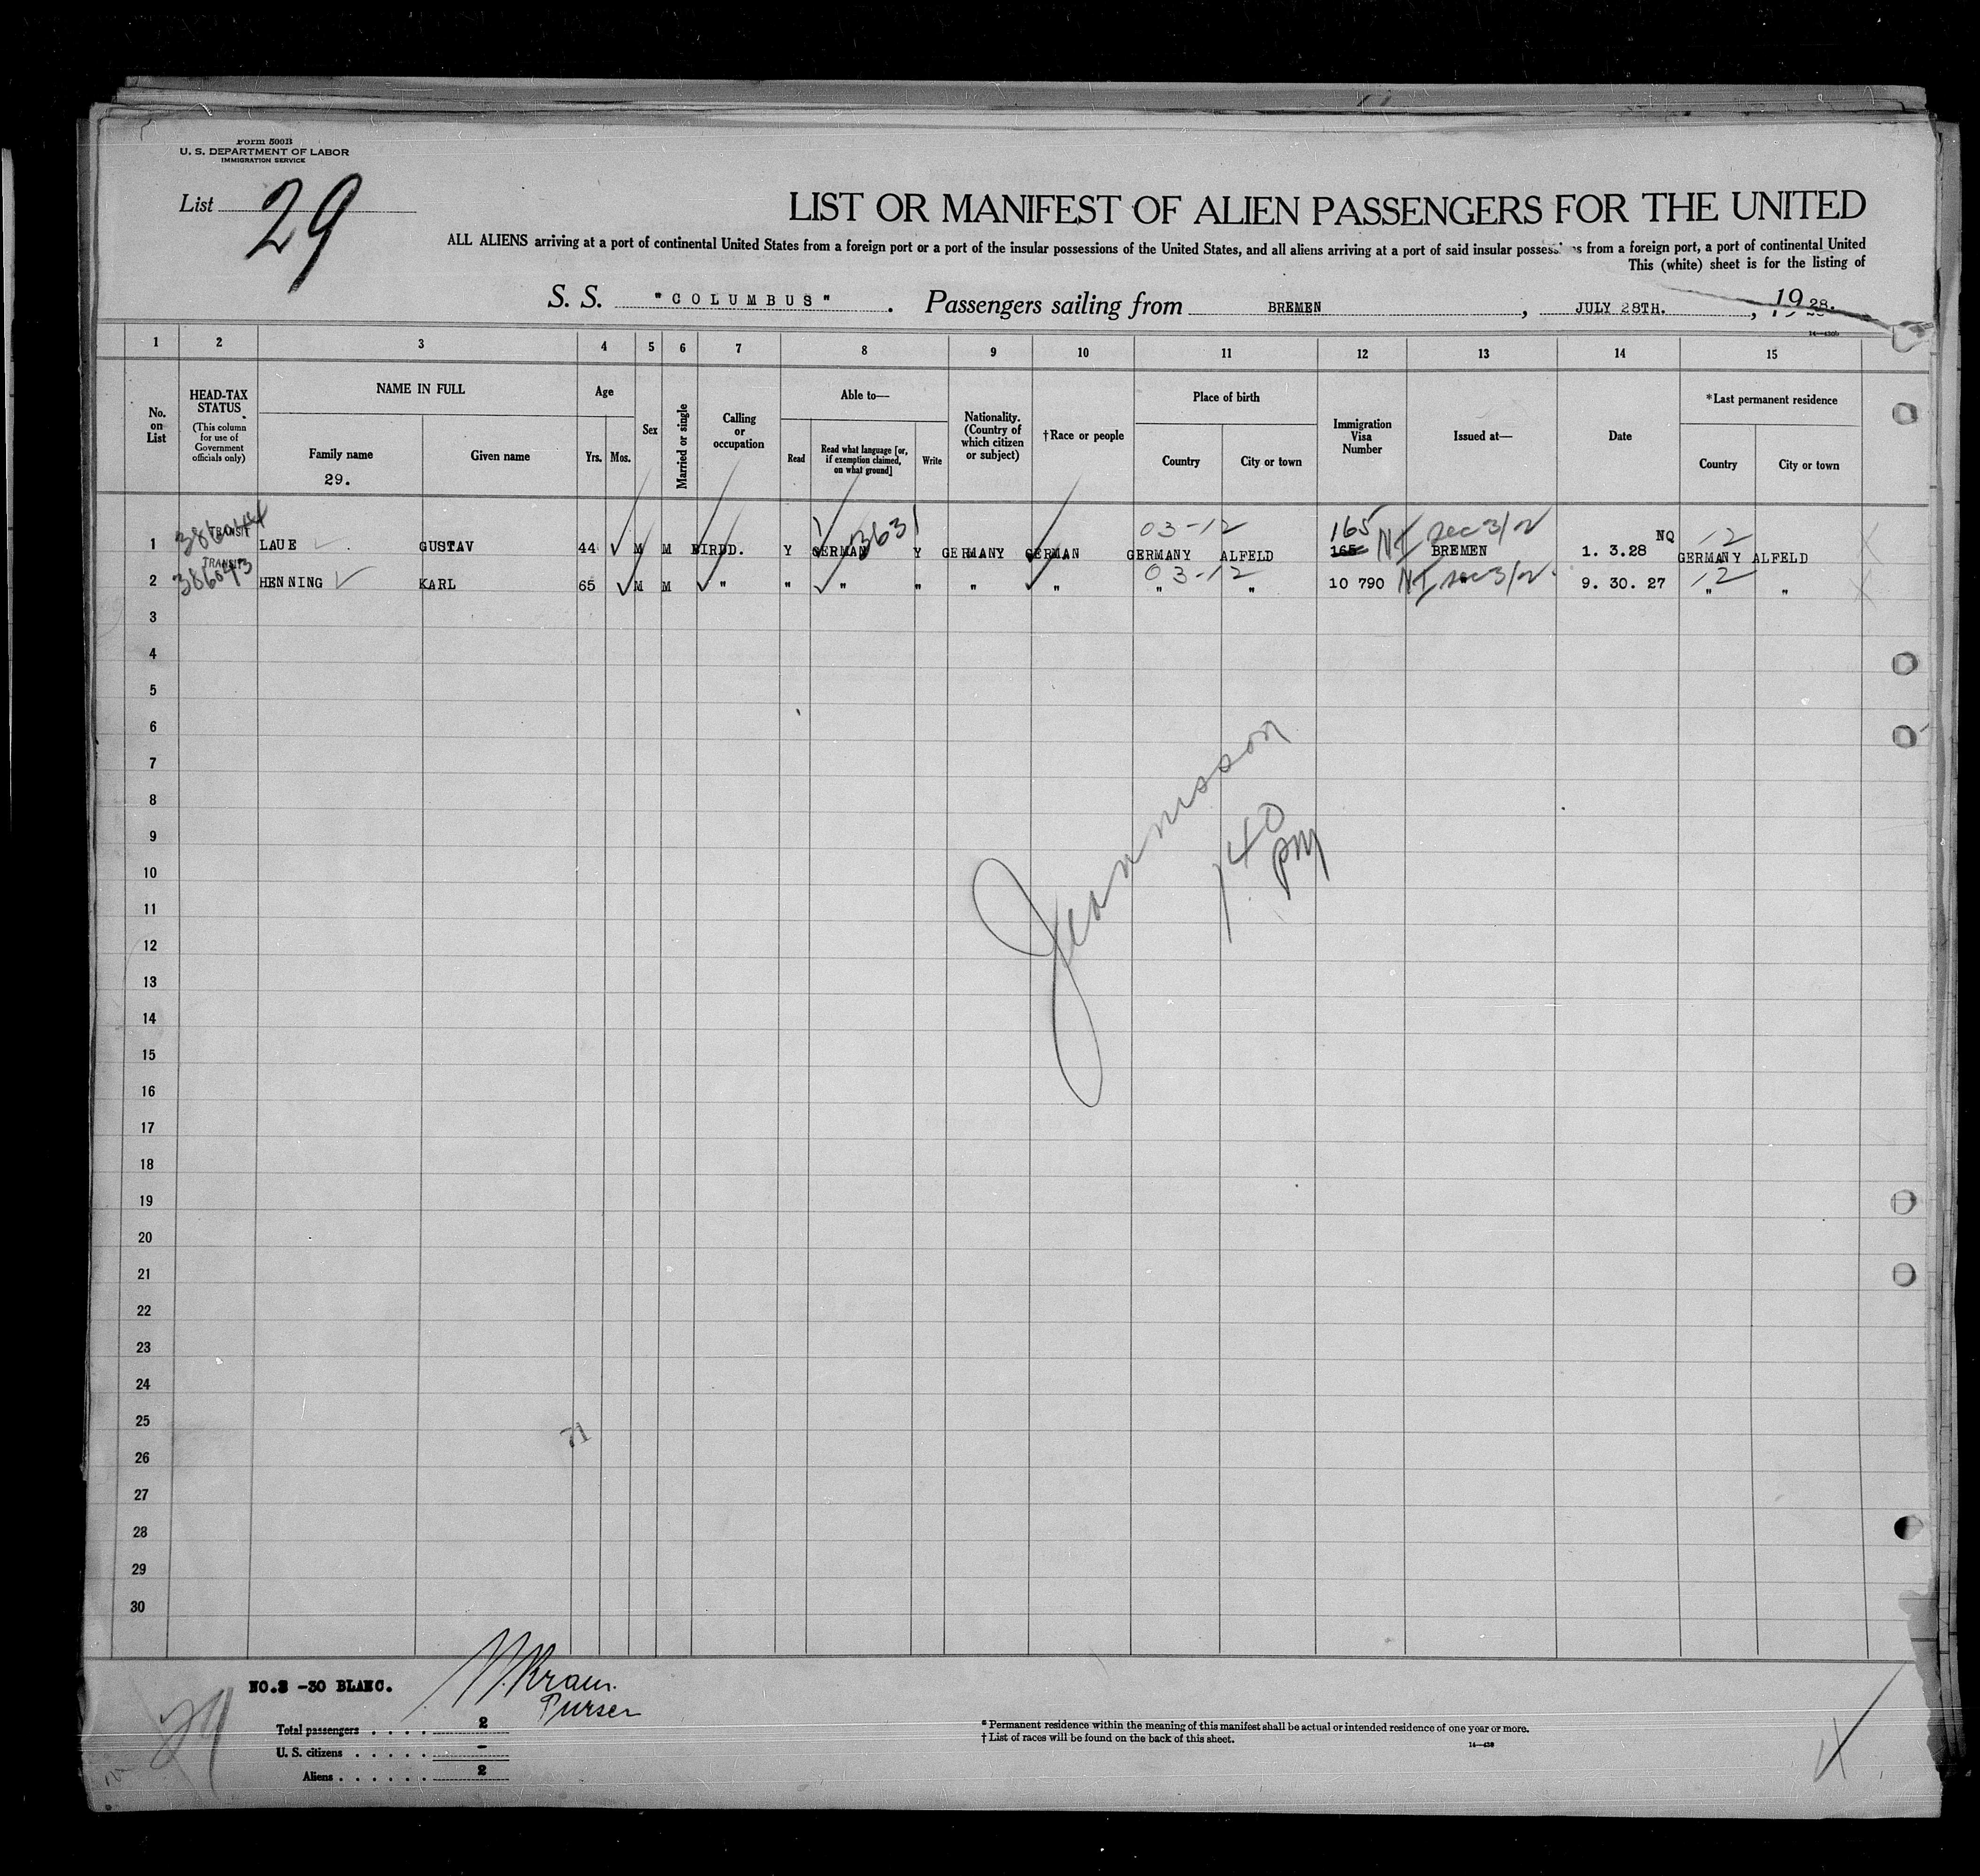 Form 500B
U. S. DEPARTMENT OF LABOR
IMMIGRATION SERVICE
List 29
LIST OR MANIFEST OF ALIEN PASSENGERS FOR THE UNITED
ALL ALIENS arriving at a port of continental United States from a foreign port or a port of the insular possessions of the United States, and all aliens arriving at a port of said insular possess s from a foreign port, a port of continental United
This (white) sheet is for the listing of
S. S. "COLUMBUS". Passengers sailing from BREMEN, JULY 28TH., 1928.
14—430b
1 2 3 4 5 6 7 8 9 10 11 12 13 14 15
No. on List
HEAD-TAX STATUS
(This column for use of Government officials only)
NAME IN FULL
Family name
29.
Given name
Age
Yrs. Mos.
Sex
Married or single
Calling or occupation
Able to—
Read
Read what language [or, if exemption claimed, on what ground]
Write
Nationality. (Country of which citizen or subject)
†Race or people
Place of birth
Country
City or town
Immigration Visa Number
Issued at—
Date
*Last permanent residence
Country
City or town
03-12 165 NI sec 3/2 NQ 12
1 TRANSIT LAUE GUSTAV 44 M M BIRDD. Y GERMAN 3631 Y GERMANY GERMAN GERMANY ALFELD 165 BREMEN 1. 3.28 GERMANY ALFELD
386043 TRANSIT 03-12 NI sec 3/2 12
2 HENNING KARL 65 M M " " " " " " " " 10 790 " 9. 30. 27 " "
3
4
5
6
7
8
9
10
11
12
13
14
15
16
17
18
19
20
21
22
23
24
25
26
27
28
29
30
1 40
PM
71
NO.3 -30 BLANC.
Purser
29
Total passengers . . . . 2
U. S. citizens . . . . . -
Aliens . . . . . . 2
* Permanent residence within the meaning of this manifest shall be actual or intended residence of one year or more.
† List of races will be found on the back of this sheet.
14—430